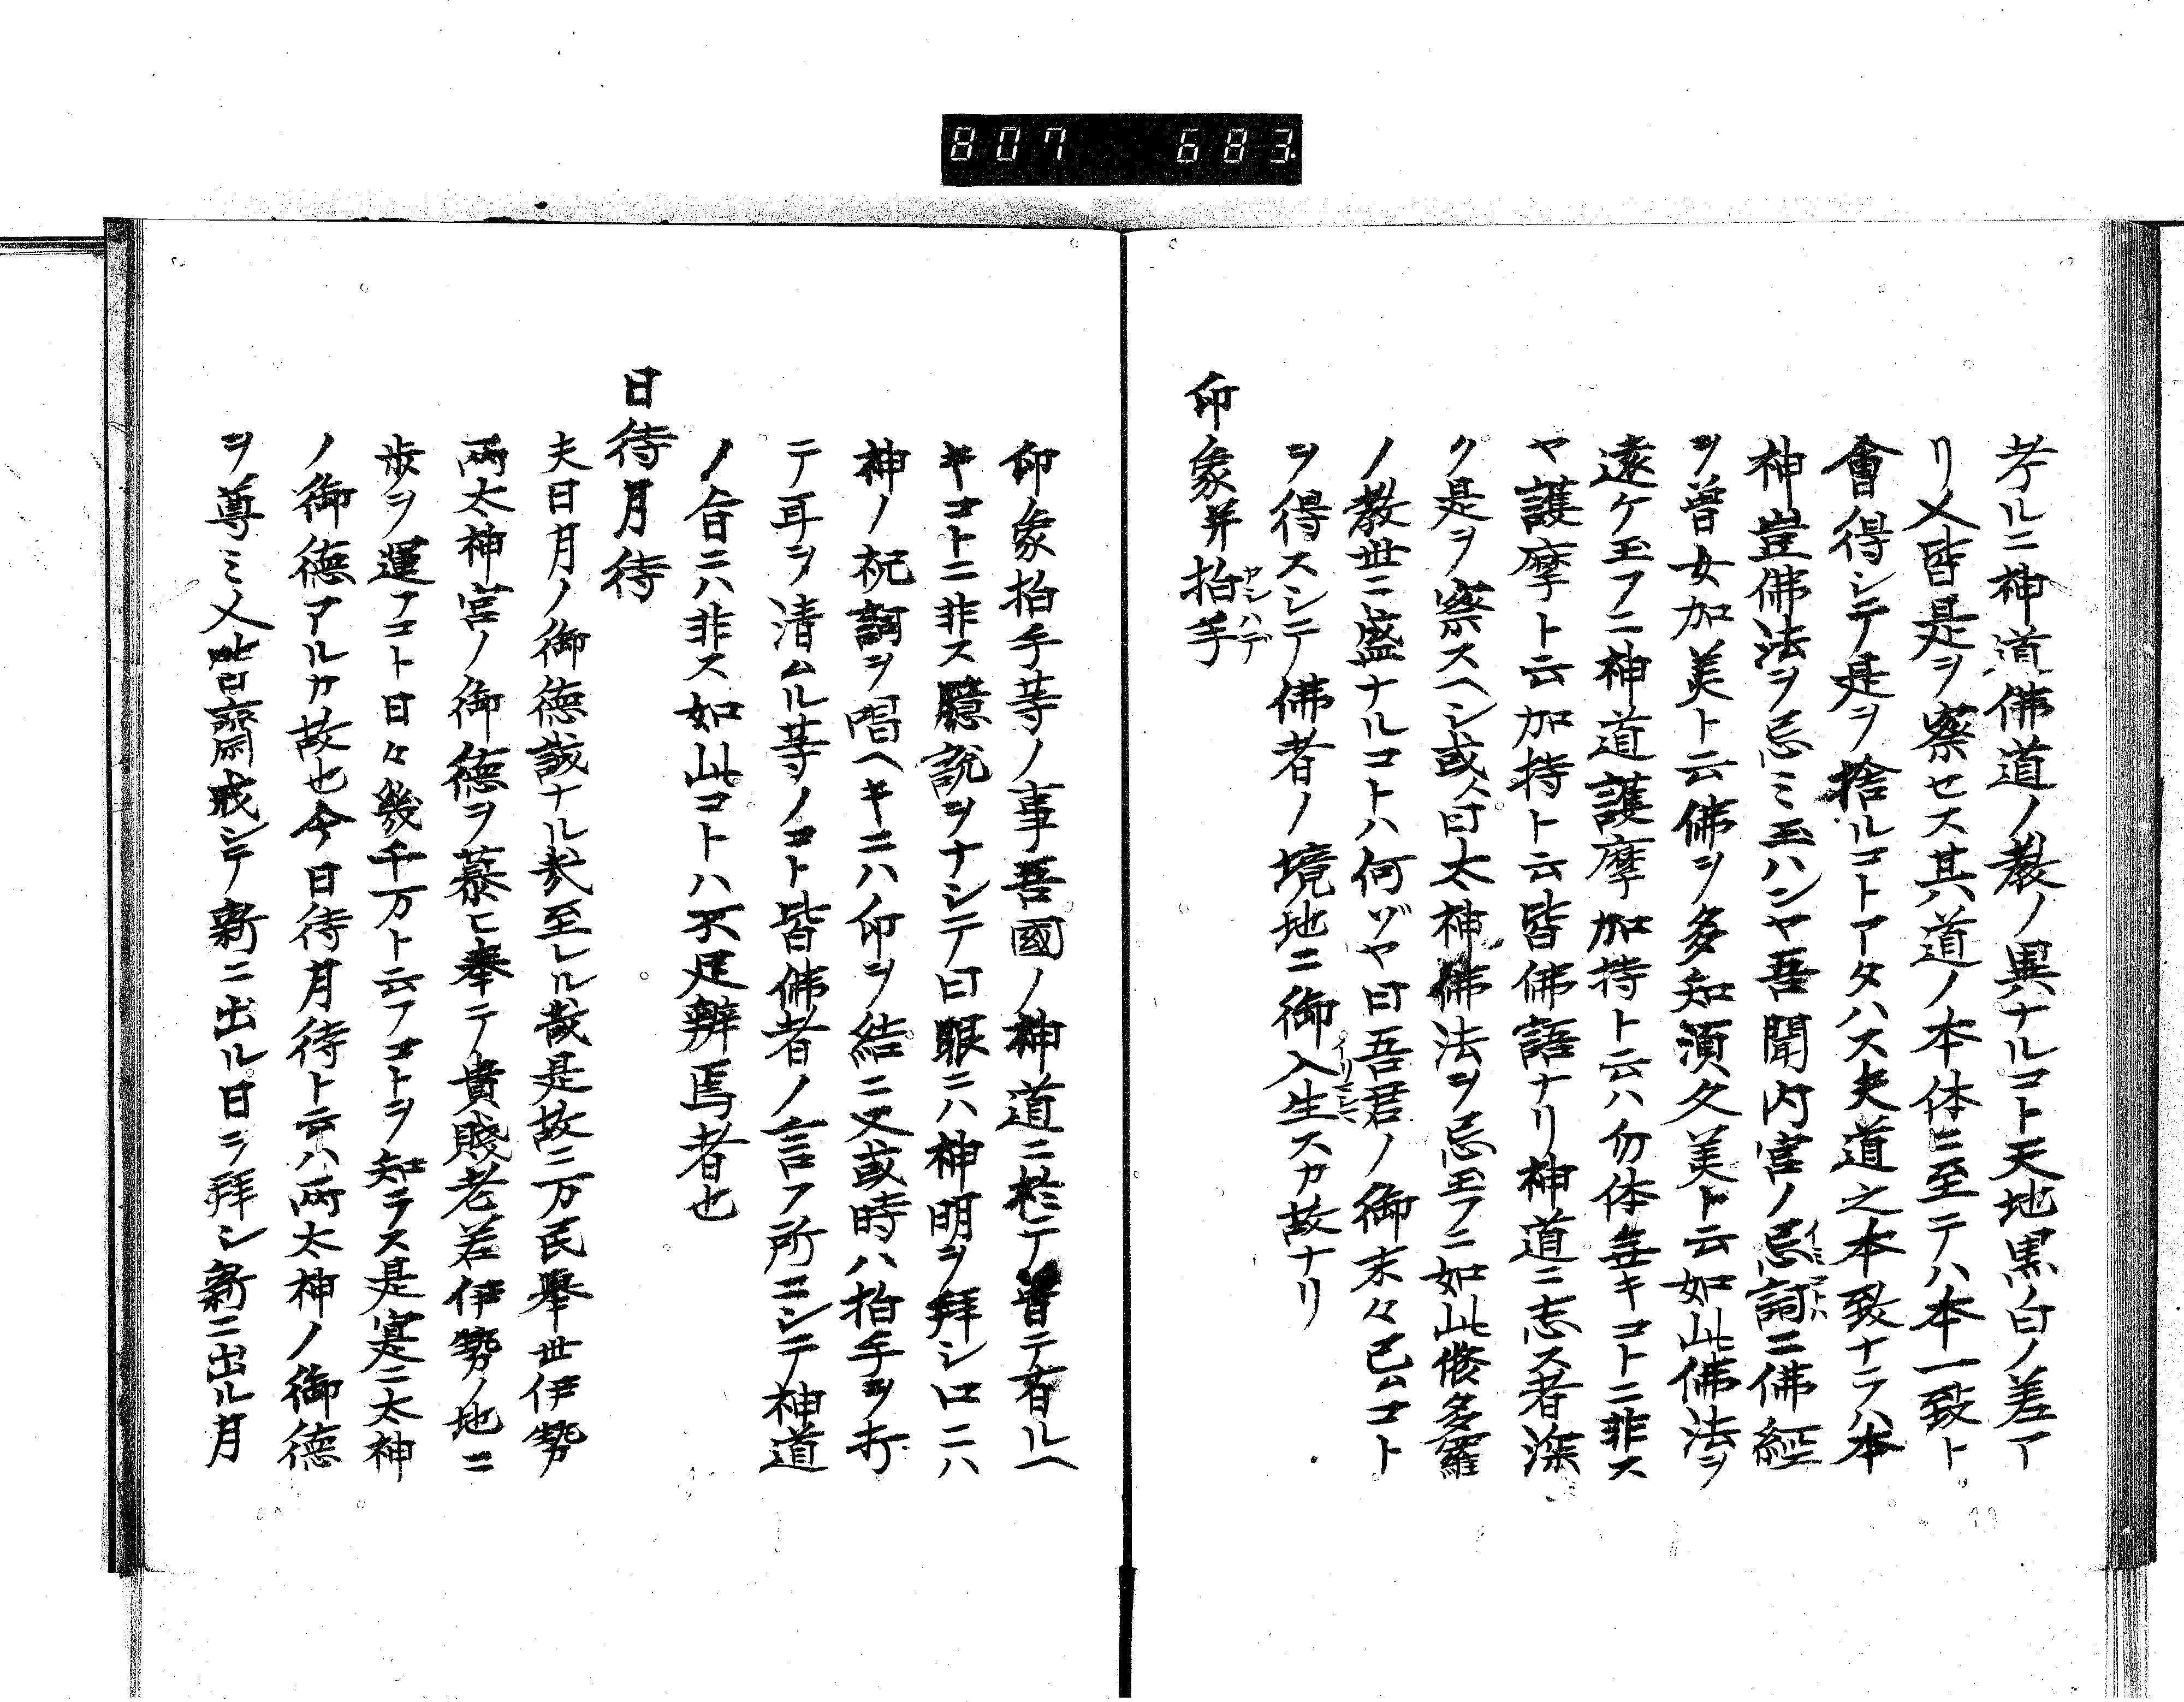 807 683.
考ルニ神道佛道ノ教ノ異ナルコト天地黒白ノ差ア
リ人皆是ヲ察セス其道ノ本体ニ至テハ本一致ト
會得シテ是ヲ捨ルコトアタハス夫道之本致ナラハ本
神豈佛法ヲ忌ミ玉ハンヤ吾聞内宮ノ忌詞ニ佛經
ヲ曽女加美ト云佛ヲ多知須久美ト云如此佛法ヲ
遠ケ玉フニ神道護摩加持ト云ハ勿体無キコトニ非ス
ヤ護摩ト云加持ト云皆佛語ナリ神道ニ志ス者深
ク是ヲ察スヘシ或人曰太神佛法ヲ忌玉フニ如此修多羅
ノ教世ニ盛ナルコトハ何ゾヤ曰吾君ノ御末々已ムコト
ヲ得スシテ佛者ノ境地ニ御入生スカ故ナリ
印象并拍手
印象拍手等ノ事吾國ノ神道ニ於テ曽テ有ルヘ
キコトニ非ス臆説ヲナシテ曰眼ニハ神明ヲ拜シ口ニハ
神ノ祝詞ヲ唱ヘキニハ印ヲ結ニ又或時ハ拍手ヲ打
テ耳ヲ清ムル等ノコト皆佛者ノ言フ所ニシテ神道
ノ合ニハ非ス如此コトハ不足辨焉者也
日待月待
夫日月ノ御徳誠ナル哉至レル哉是故ニ万民擧世伊勢
兩太神宮ノ御徳ヲ慕ヒ奉テ貴賤老若伊勢ノ地ニ
歩ヲ運フコト日々幾千万ト云フコトヲ知ラス是寔ニ太神
ノ御徳アルカ故也今日待月待ト云ハ兩太神ノ御徳
ヲ尊ミ人皆齋戒シテ新ニ出ル日ヲ拜シ新ニ出ル月